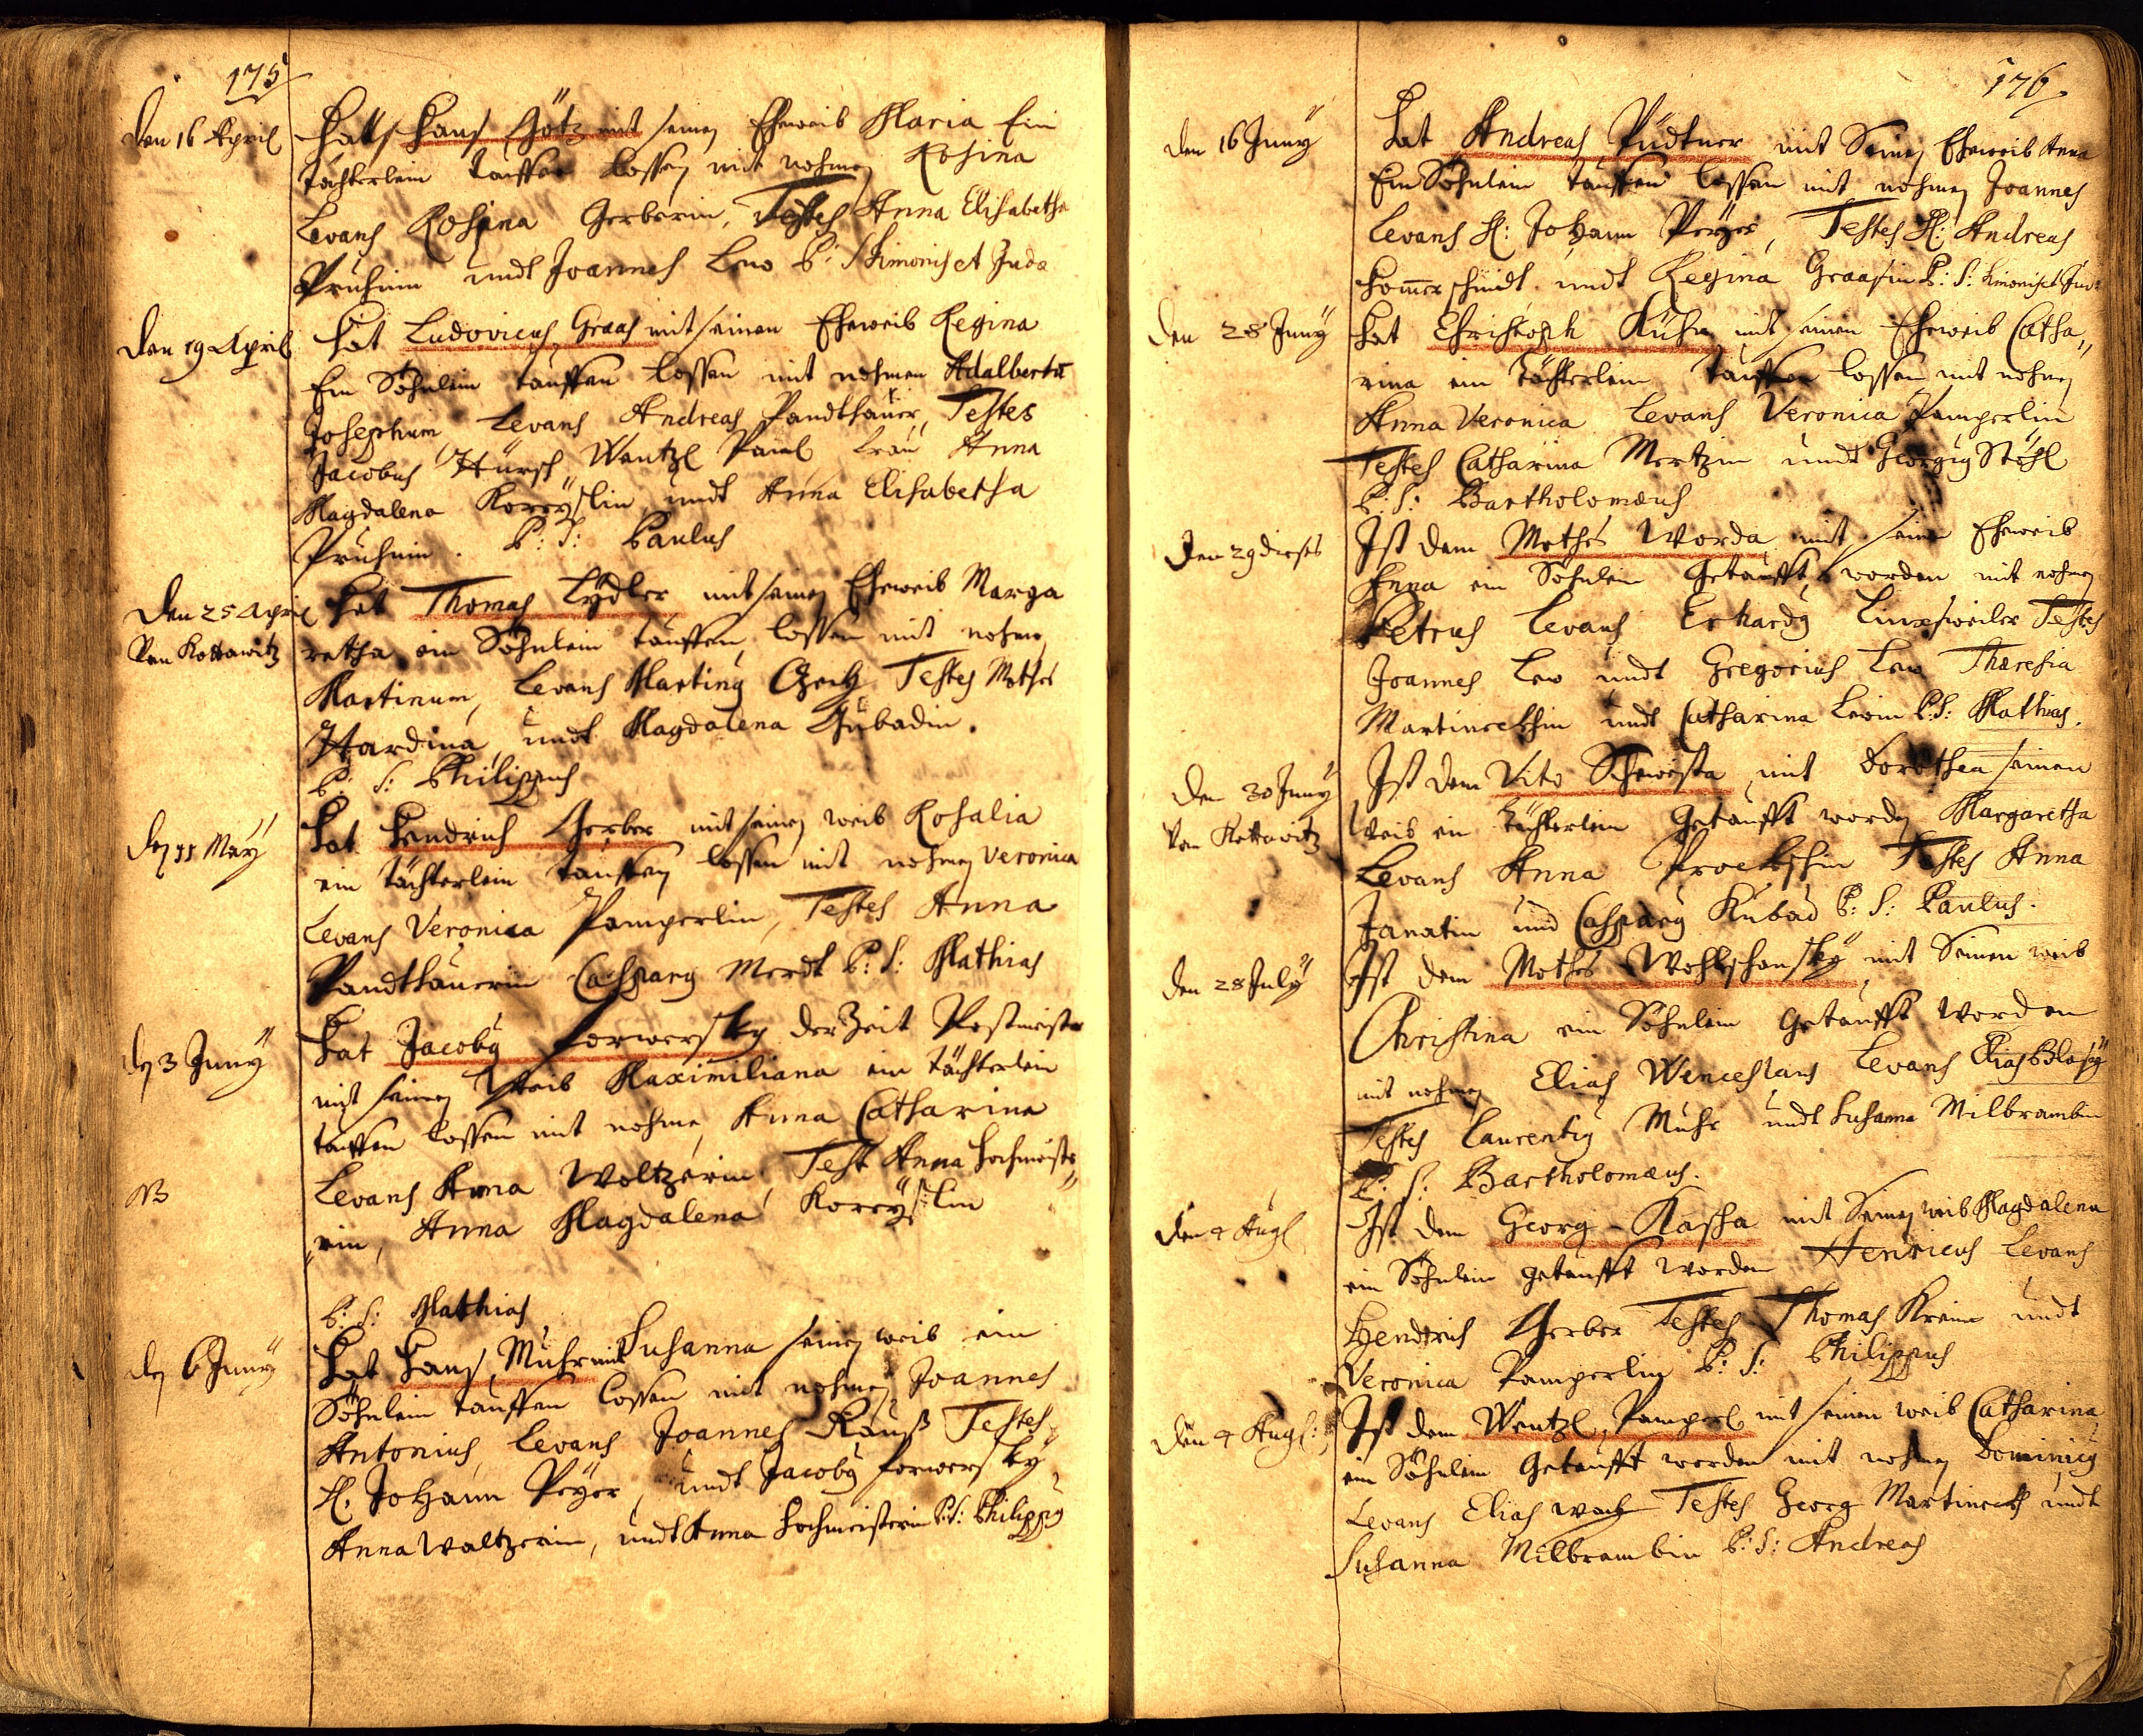 175
Den 16 April
Hatt Hans Götz mit seinen Eheweib Maria Ein
töchterlein tauffen lossen mit nohmen Rosina
Levans Rosina Gerberin, Testes Anna Elisabetha
Pruhnin undt Joannes Lew P: S Simonis et Juda
Den 19 April
Hat Ludovicus Graas mit seinen Eheweib Regina
Ein Söhnlein tauffen lossen mit nohmen Adalbertū
Josephum Levans Andreas Pandthauer, Testes
Jacobus Hürsch, Wentzl Paul Frau Anna
Magdalena Korrÿslin undt Anna Elisabetha
Pruhnin. P: S: Paulus
Den 25 April
Von Kottawitz
Hat Thomas Lÿdler mit seinen Eheweib Marga
retha ein Söhnlein tauffen lossen mit nohmen
Martinum, Levans Marting Czech Testes Mothes
Hardina undt Magdalena Gubadin.
P: S: Philippus
Den 11 Maÿ
Hat Hendrich Gerber mit seinen weib Rosalia
ein töchterlein tauffen lossen mit nohmen Veronica
Levans Veronica Pamperlin, Testes Anna
Pandthauerin Casparg Merdt P: S: Mathias
Den 3 Junÿ
Hat Jacobg Forwerskÿ der Zeit Postmeister
mit seinen Weib Maximiliana ein töchterlein
tauffen lossen mit nohmen Anna Catharina
NB
Levans Anna Woltzerin Test Anna Hochmeiste„
„rin, Anna Magdalena Korrÿslin
P: S: Mathias
Den 6 Junÿ
Hat Hans Muhr mit Susanna seinen weib ein
Söhnlein tauffen lossen mit nohmen Joannes
Antonius, Levans Joannes Rauß Testes
H. Johann Peÿer, undt Jacobg Forwerskÿ
Anna Waltzerin, undt Anna Hochmeisterin P:S: Philippg
176
Den 16 Junÿ
Hat Andreas Pudtner mit Seinen Eheweib Anna
Ein Söhnlein tauffen lossen mit nohmen Joannes
Levans H: Johann Peÿer, Testes H: Andreas
Hom̄erschmidt undt Regina Graasin P: S: Simonis et Jud:
Den 28 Junÿ
Hat Christoph Kuhn mit seinen Eheweib Catha„
rina ein töchterlein tauffen lossen mit nohmen
Anna Veronica Levans Veronica Pamperlin
Testes Catharina Mertzin undt Georgig Stöhl
P: S: Bartholomæus
Den 29 dieses
Ist dem Mothes Worda mit seinen Eheweib
Anna ein Söhnlein Getaufft worden mit nohmen
Petrus Levans Erhardg Linxsweiler Testes
Joannes Lew undt Gregorius Lew Theresia
Martinckhin undt Catharina Lewin P:S: Mathias.
Den 30 Junÿ
Von Kottawitz
Ist dem Vito Schewesta mit Dorothea seinen
Weib ein töchterlein Getaufft worden Margaretha
Levans Anna Prockschin Testes Anna
Janatin und Casparg Kubad P: S: Paulus.
Den 28 Julÿ
Ist dem Mothes Wohlschanskÿ mit Seinen weib
Christina ein Söhnlein Getaufft worden
mit nohmen Elias Wenceslaus Levans Elias Blasÿ
Testes Laurentig Muhr undt Susanna Milbrambin
P: S: Bartholomæus.
Den 4 Augl
Ist dem Georg Kascha mit Seinen weib Magdalena
ein Söhnlein getaufft worden Henricus Levans
Hendrich Gerber Testes Thomas Kreine undt
Veronica Pamperlin P: S: Philippus
Den 4 Augl:
Ist dem Wentzl Pamperl mit seinen weib Catharina
ein Söhnlein Getaufft worden mit nohmen Dominicg
Levans Elias Testes Georg Martineckh undt
Susanna Milbrambin P: S: Andreas